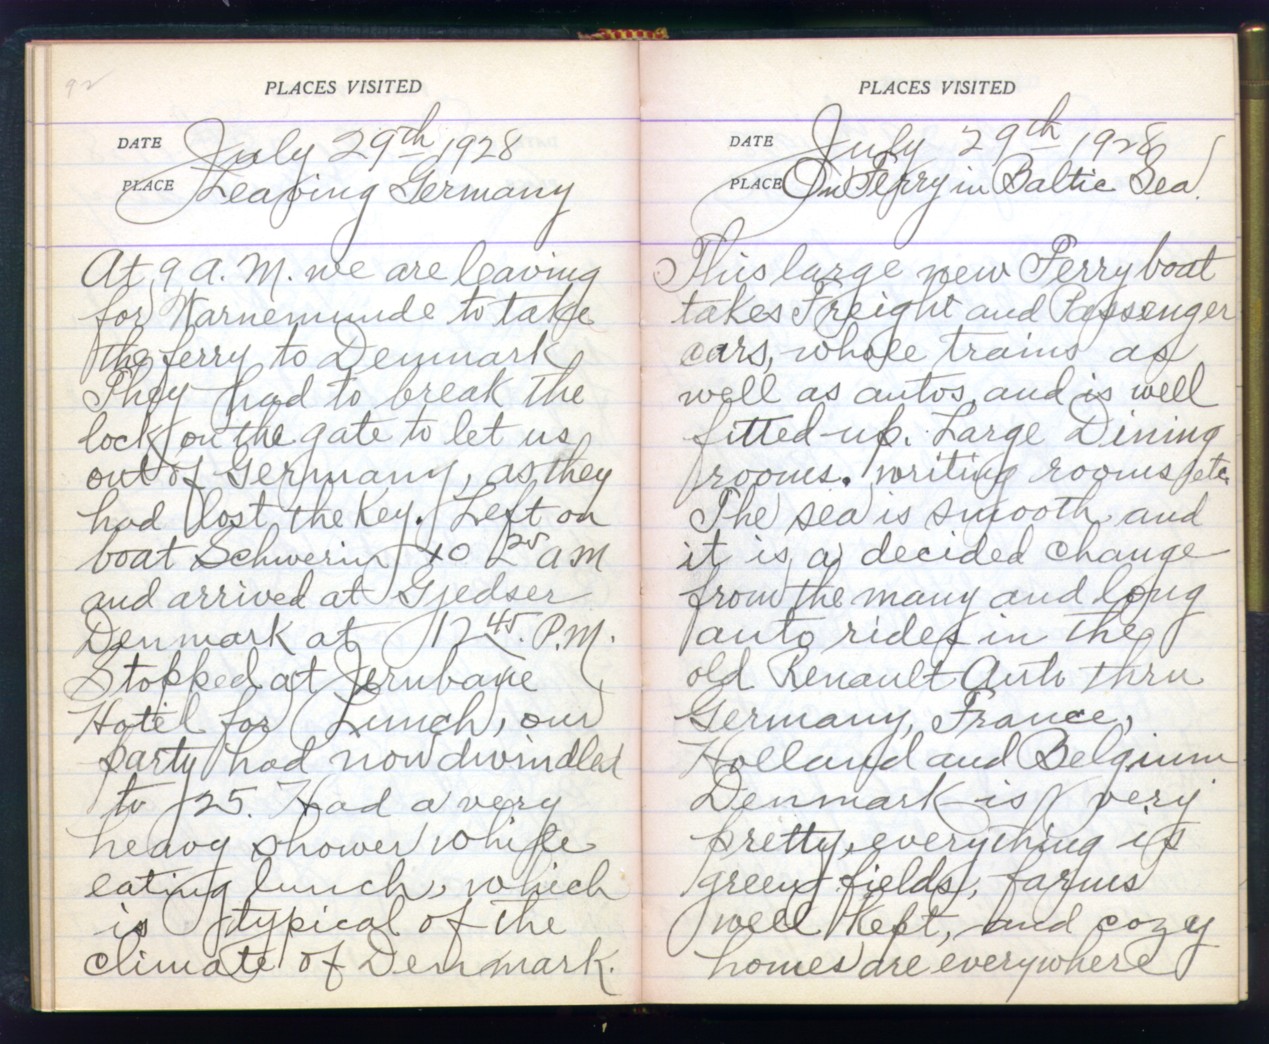 92
PLACES VISITED
DATE July 29th 1928
PLACE Leaving Germany
At 9 A.M. we are leaving
for Warnemunde to take
the ferry to Denmark
They had to break the
lock on the gate to let us
out of Germany, as they
had lost the Key. Left on
boat Schwerin 10 25 a m
and arrived at Gjedser
Denmark at 12 45 P.M.
Stopped at Jernbane
Hotel for Lunch, our
party had now dwindled
to 25. Had a very
heavy shower while
eating lunch, which
is typical of the
climate of Denmark.
PLACES VISITED
DATE July 29th 1928
PLACE On Ferry in Baltic Sea.
This large new Ferry boat
takes Freight and Passenger
cars, whole trains as
well as autos, and is well
fitted up. Large Dining
rooms. writing rooms, etc.
The sea is smooth and
it is a decided change
from the many and long
auto rides in the
old Renault Auto thru
Germany, France,
Holland and Belgium
Denmark is very
pretty, everything is
green, fields, farms
well kept, and cozy
homes are everywhere